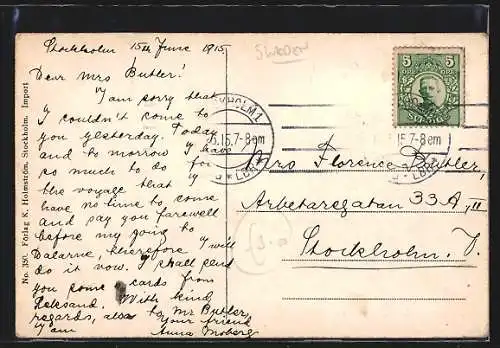 Stockholm 15th June 1915
SWEDEN
Dear Mrs Butler!
I am sorry that
I couldn't come to
you yesterday. Today
and to morrow I have
so much to do for
the voyage that I
have no time to come
and say you farewell
before my going to
Dalarne, therefore I will
do it now. I shall send
you some cards from
Leksand. With kind
regards, also to Mr Butler,
I am Your friend
Anna Moberg
No. 350. Förlag K. Holmström, Stockholm. Import
5 5
SVERIGE
STOCKHOLM 1
6.15.7-8 am
LBR
15.7-8 am
LBR
Mrs Florence Butler,
Arbetaregatan 33 A, II
Stockholm. V.